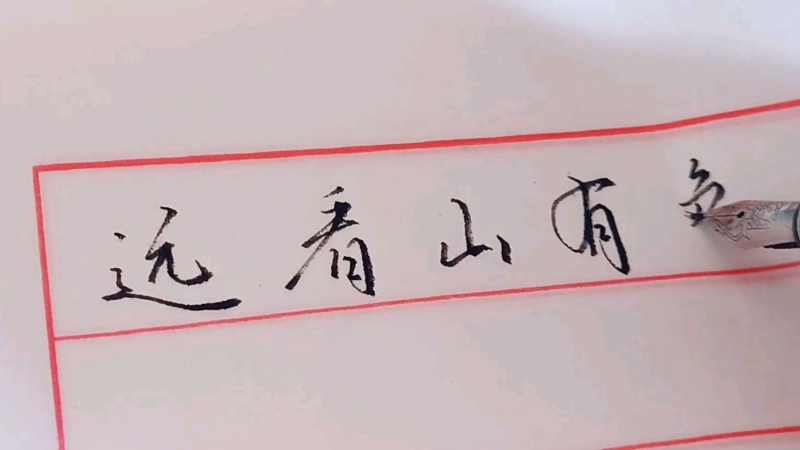 远看山有色